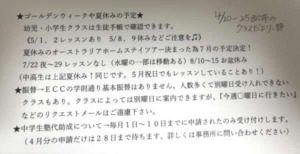 ★ゴールデンウィークや夏休みの予定★
幼児・小学生クラスは生徒手帳で確認できます。
《5/1、2レッスンあり 5/8、9休みなどご注意を》
夏休みのオーストラリアホームステイツアー決まった為7月の予定決定！
7/22後～29レッスンなし（水曜の一部は移動ある）8/10～15お盆休み
（中高生は上記夏休み↑同じです。5月祝日でもレッスンしていることあり！）
★振替→ECCの学則通り基本振替はありません。人数多くて別曜日受け入れできない
クラスもあり。クラスによっては別曜日に案内できますが、「今週○曜日に行きたい」
などのリクエストメールはご遠慮下さい。
★中学生塾代助成について→毎月1日～10日までに申請されたのみ受け付けします。
（4月分の申請だけは28日まで待ちます、詳しくは事務所に問い合わせください）
4/20～25